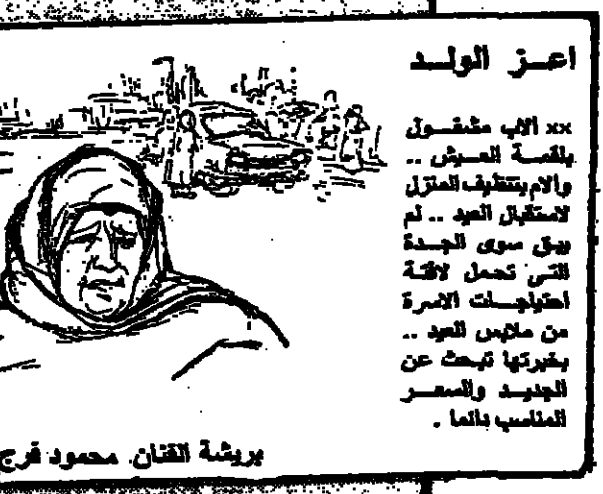 اعــز الولــد
xx الأب مشغــول
بلقمــة العــيش ..
والام بتنظيف المنزل
لاستقبال العيد .. لم
يبق سوى الجــدة
التــى تحمل لافتة
احتياجــات الاسرة
من ملابس العيد ..
بخبرتها تبحث عن
الجديــد والسعــر
المناسب دائما .
بريشة الفنان محمود فرج